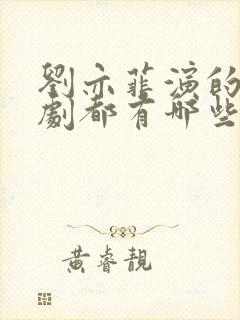 劉亦菲演的
劇都有哪些
黃睿靚